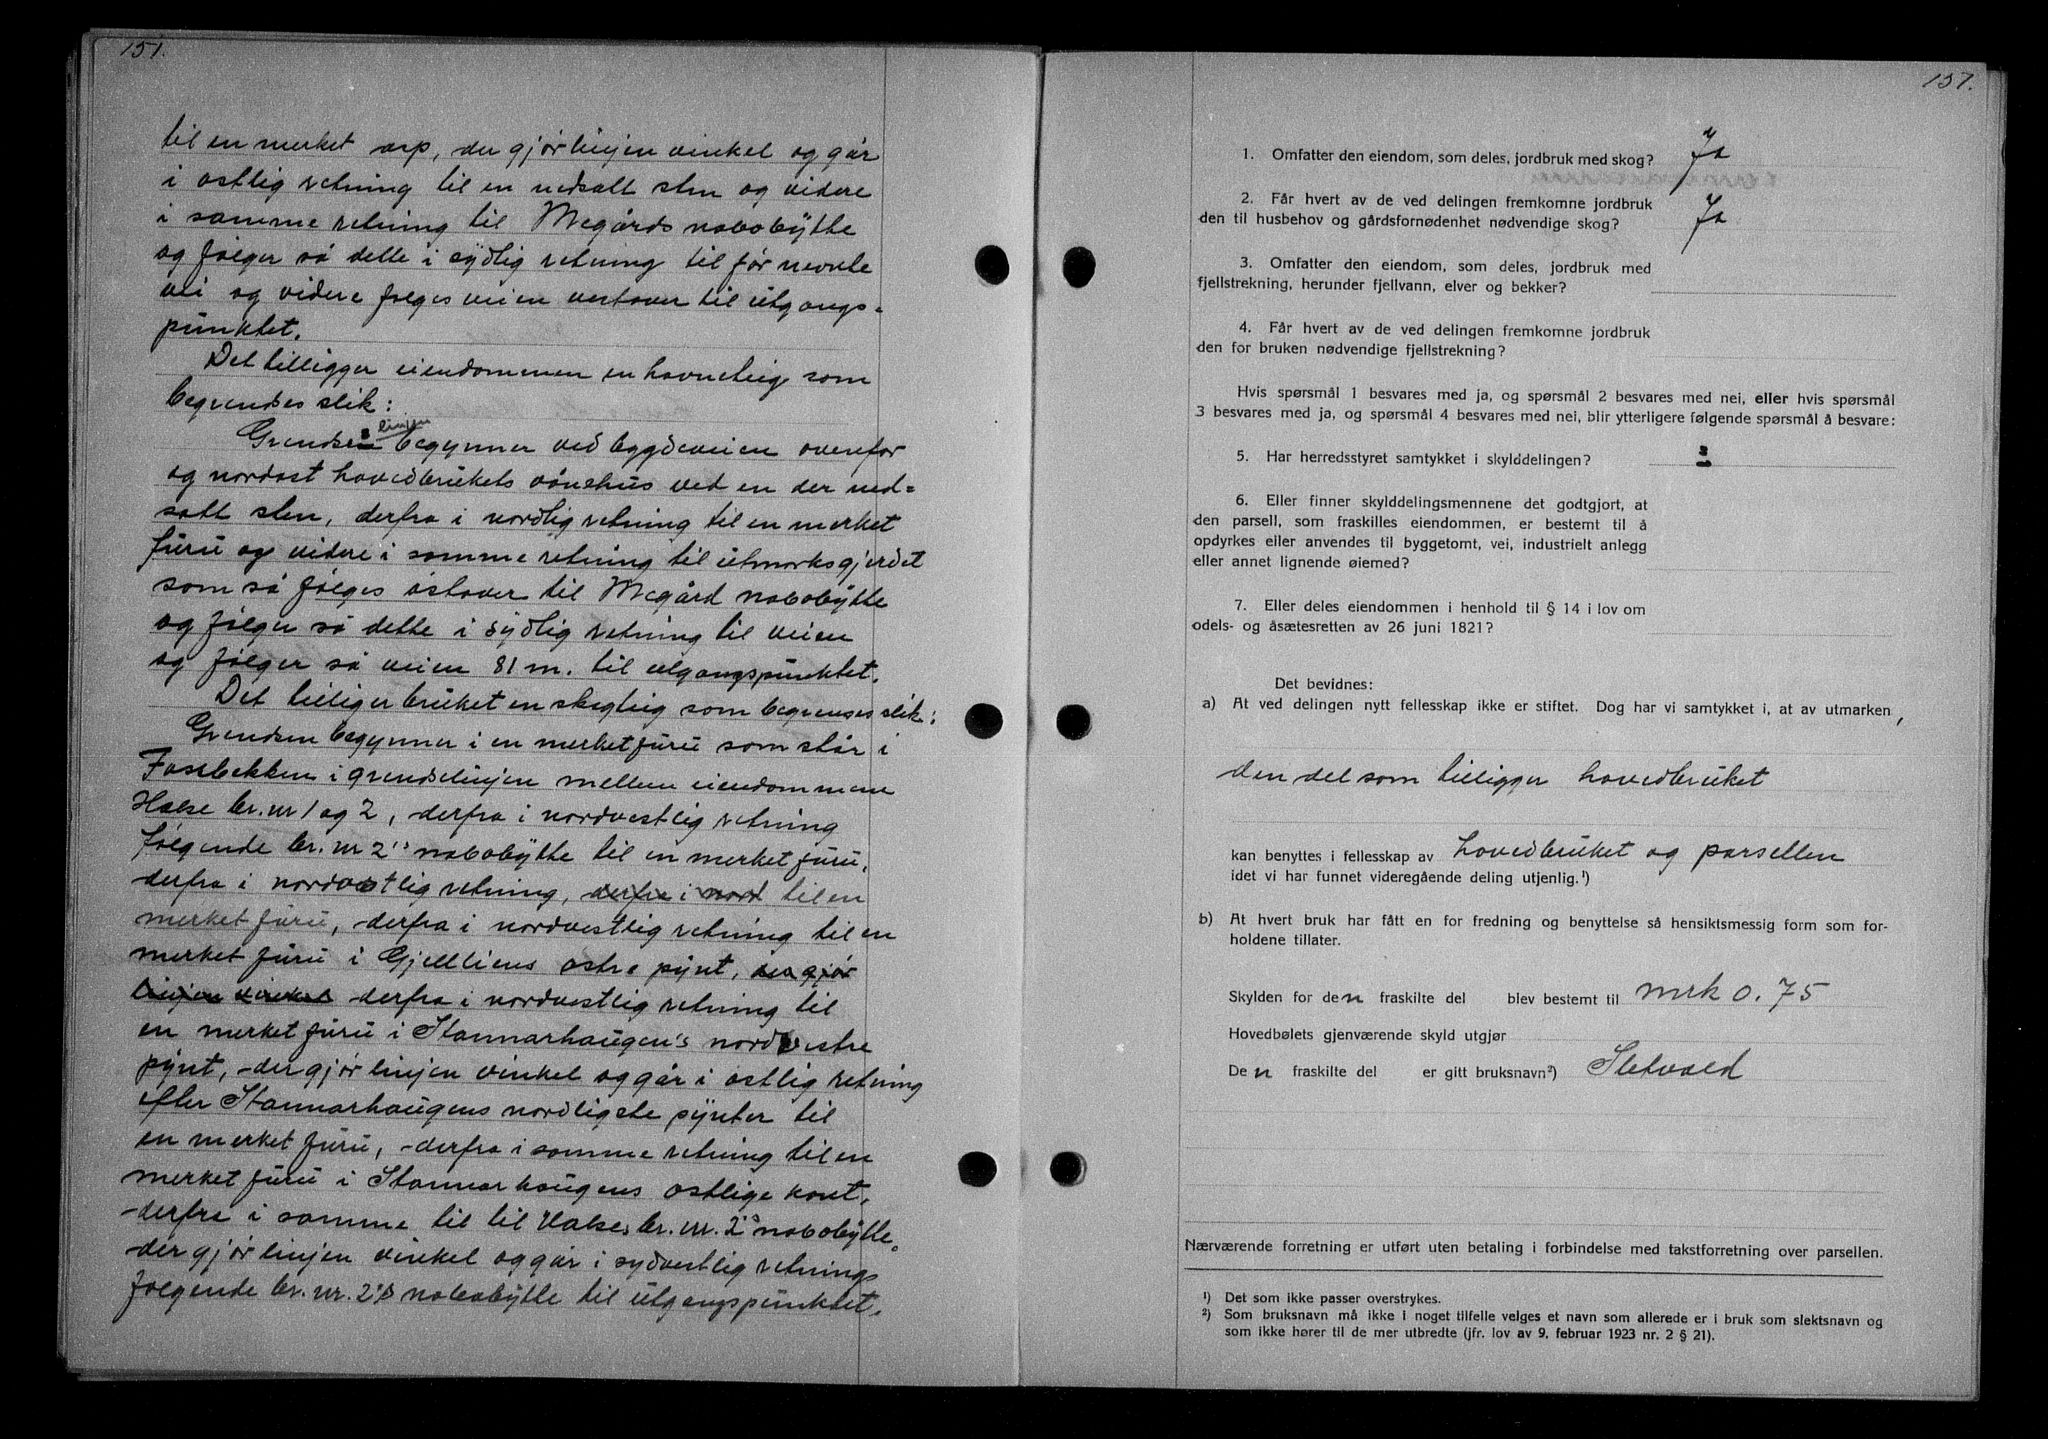 151.
til en merket asp, der gjør linjen vinkel og går
i østlig retning til en nedsatt sten og videre
i samme retning til Megårds nabobytte
og følger så dette i sydlig retning til før nevnte
vei og videre følges veien vestover til utgangs-
punktet.
Det tilligger eiendommen en havneteig som
begrendses slik:
linjen
Grendsen begynner ved bygdeveien ovenfor
og nordost hovedbrukets vånehus ved en der ned=
satt sten, derfra i nordlig retning til en merket
furu og videre i samme retning til utmarksgjerdet
som så følges østover til Megård nabobytte
og følger så dette i sydlig retning til veien
og følger så veien 81 m. til utgangspunktet.
Det tilliger bruket en skogteig som begrenses slik:
Grendsen begynner i en merket furu som står i
Fossbekken i grendselinjen mellem eiendommene
Halse br.nr 1 og 2, derfra i nordvestlig retning
følgende br. nr 2's nabobytte til en merket furu,
derfra i nordvestlig retning, derfra i nord til en
merket furu, - derfra i nordvestlig retning til en
merket furu i Gjelliens østre pynt, der gjør
linjen vinkel - derfra i nordvestlig retning til
en merket furu i Stannarhaugen's nordvestre
pynt, - der gjør linjen vinkel og går i østlig retning
efter Stannarhaugens nordligste pynter til
en merket furu, - derfra i samme retning til en
merket furu i Stannarhaugens østlige kant,
- derfra i samme til til Halses br. nr. 2's nabobytte,
- der gjør linjen vinkel og går i sydvestlig retnings
følgende br. nr. 2's nabobytte til utgangspunktet.
151.
1. Omfatter den eiendom, som deles, jordbruk med skog? Ja
2. Får hvert av de ved delingen fremkomne jordbruk
den til husbehov og gårdsfornødenhet nødvendige skog? Ja
3. Omfatter den eiendom, som deles, jordbruk med
fjellstrekning, herunder fjellvann, elver og bekker?
4. Får hvert av de ved delingen fremkomne jordbruk
den for bruken nødvendige fjellstrekning?
Hvis spørsmål 1 besvares med ja, og spørsmål 2 besvares med nei, eller hvis spørsmål
3 besvares med ja, og spørsmål 4 besvares med nei, blir ytterligere følgende spørsmål å besvare:
5. Har herredsstyret samtykket i skylddelingen?
6. Eller finner skylddelingsmennene det godtgjort, at
den parsell, som fraskilles eiendommen, er bestemt til å
opdyrkes eller anvendes til byggetomt, vei, industrielt anlegg
eller annet lignende øiemed?
7. Eller deles eiendommen i henhold til § 14 i lov om
odels- og åsætesretten av 26 juni 1821?
Det bevidnes:
a) At ved delingen nytt fellesskap ikke er stiftet. Dog har vi samtykket i, at av utmarken,
den del som tilligger hovedbruket
kan benyttes i fellesskap av hovedbruket og parsellen
idet vi har funnet videregående deling utjenlig.¹)
b) At hvert bruk har fått en for fredning og benyttelse så hensiktsmessig form som for-
holdene tillater.
Skylden for den fraskilte del blev bestemt til mrk 0.75
Hovedbølets gjenværende skyld utgjør
Den fraskilte del er gitt bruksnavn²) Sletvold
Nærværende forretning er utført uten betaling i forbindelse med takstforretning over parsellen.
¹) Det som ikke passer overstrykes.
²) Som bruksnavn må ikke i noget tilfelle velges et navn som allerede er i bruk som slektsnavn og
som ikke hører til de mer utbredte (jfr. lov av 9. februar 1923 nr. 2 § 21).